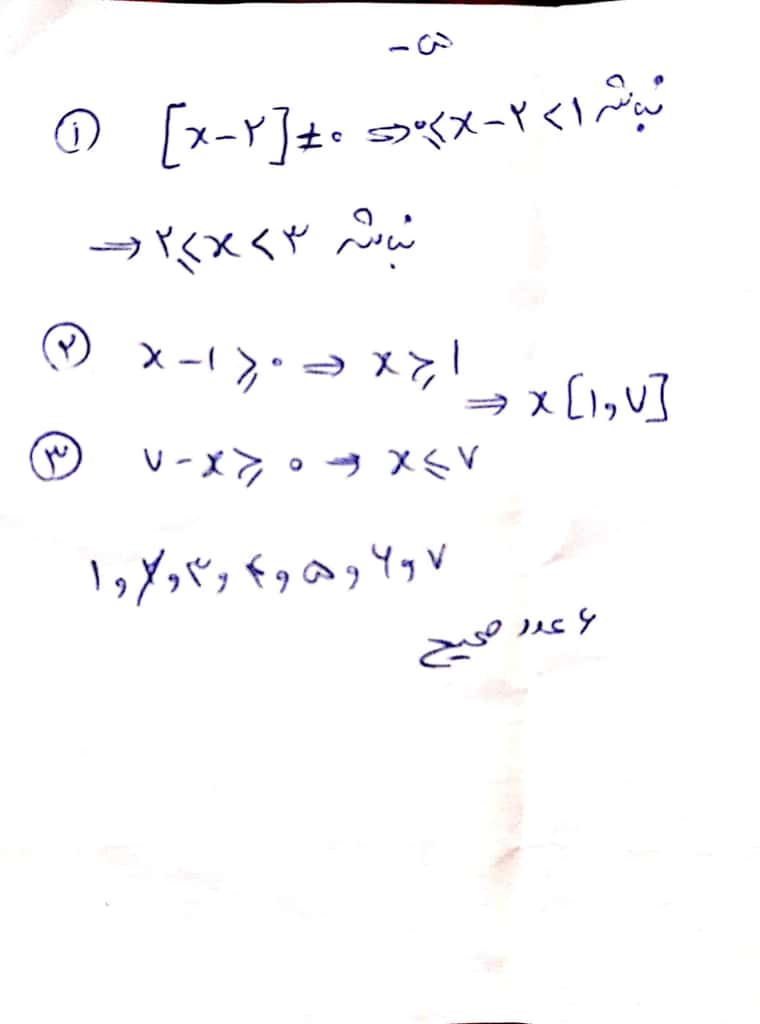 -۵
① [x-۲]≠۰ ⇒ ۰≤x-۲<۱ نباشد
⇒ ۲≤x<۳ نباشد
② x-۱≥۰ ⇒ x≥۱
⇒ x[۱,۷]
③ ۷-x≥۰ ⇒ x≤۷
۱,۲,۳,۴,۵,۶,۷
۶ عدد صحیح